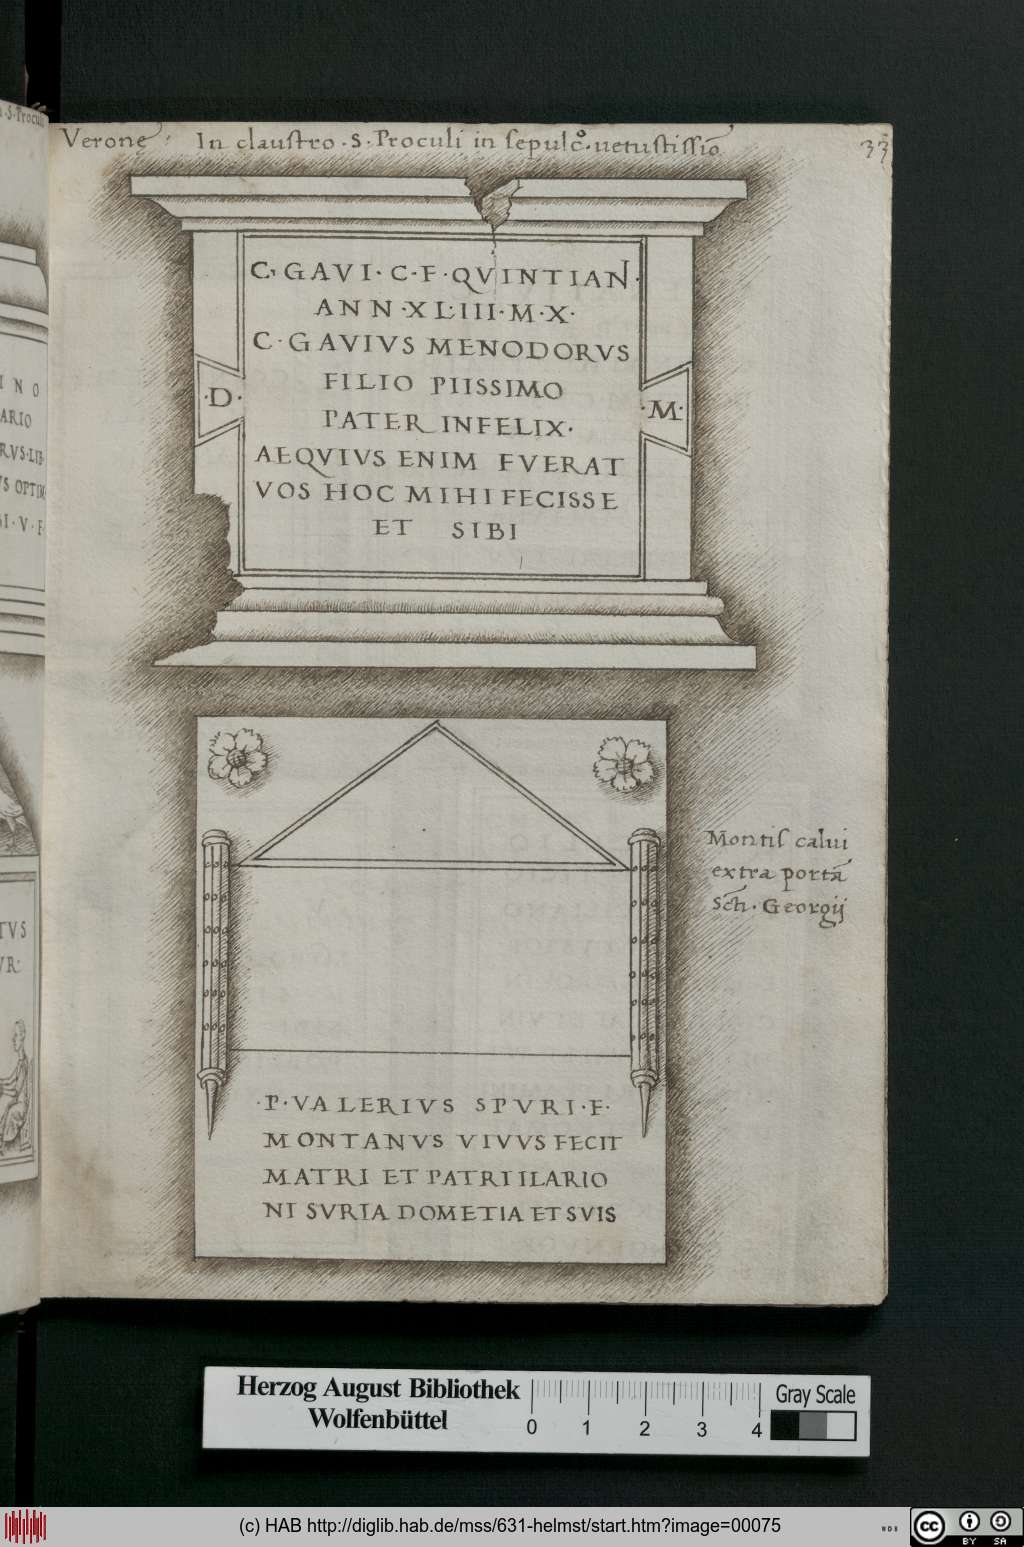 Verone · In claustro · S · Proculi in sepulc̊ · uetustissio
33
C · GAVI · C · F · QVINTIAN ·
ANN · XLIII · M · X ·
C · GAVIVS MENODORVS
FILIO PIISSIMO
· D · · M ·
PATER INFELIX ·
AEQVIVS ENIM FVERAT
VOS HOC MIHI FECISSE
ET SIBI
Montis calui
extra portā
Scti · Georgij
· P · VALERIVS SPVRI · F ·
MONTANVS VIVVS FECIT
MATRI ET PATRI ILARIO
NI SVRIA DOMETIA ET SVIS
S · Proculi
INO
ARIO
RVS · LIB
VS OPTIM
BI · V · F ·
TVS
VR
Herzog August Bibliothek
Wolfenbüttel
0 1 2 3 4
Gray Scale
(c) HAB http://diglib.hab.de/mss/631-helmst/start.htm?image=00075
WDB
cc BY SA